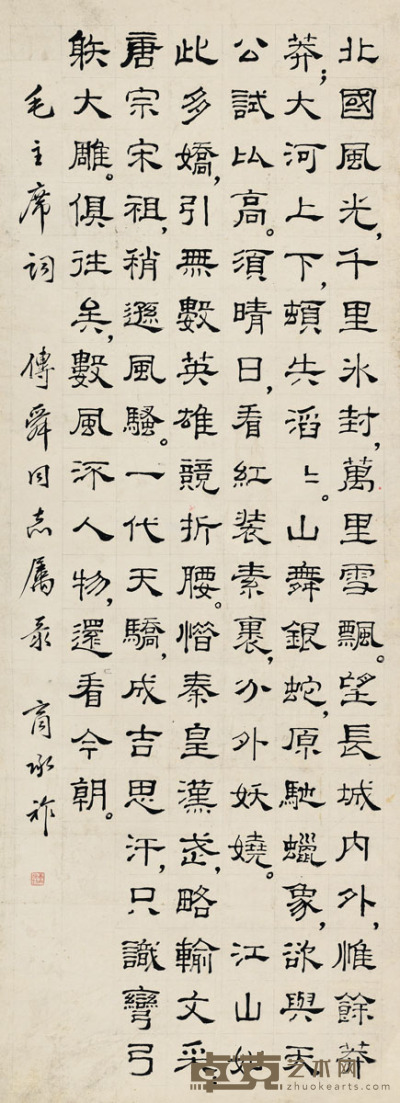 北國風光,千里氷封,萬里雪飄。望長城内外,惟餘莽
莽;大河上下,頓失滔〻。山舞銀蛇,原馳蠟象,欲與天
公試比高。須晴日,看紅装素裹,分外妖嬈。 江山如
此多嬌,引無數英雄競折腰。惜秦皇漢武,略輸文采,
唐宗宋祖,稍遜風騷。一代天驕,成吉思汗,只識彎弓
䠶大雕。俱往矣,數風流人物,還看今朝。
毛主席詞 傳舜同志屬录 商承祚
卓克艺术网
zhuokearts.com